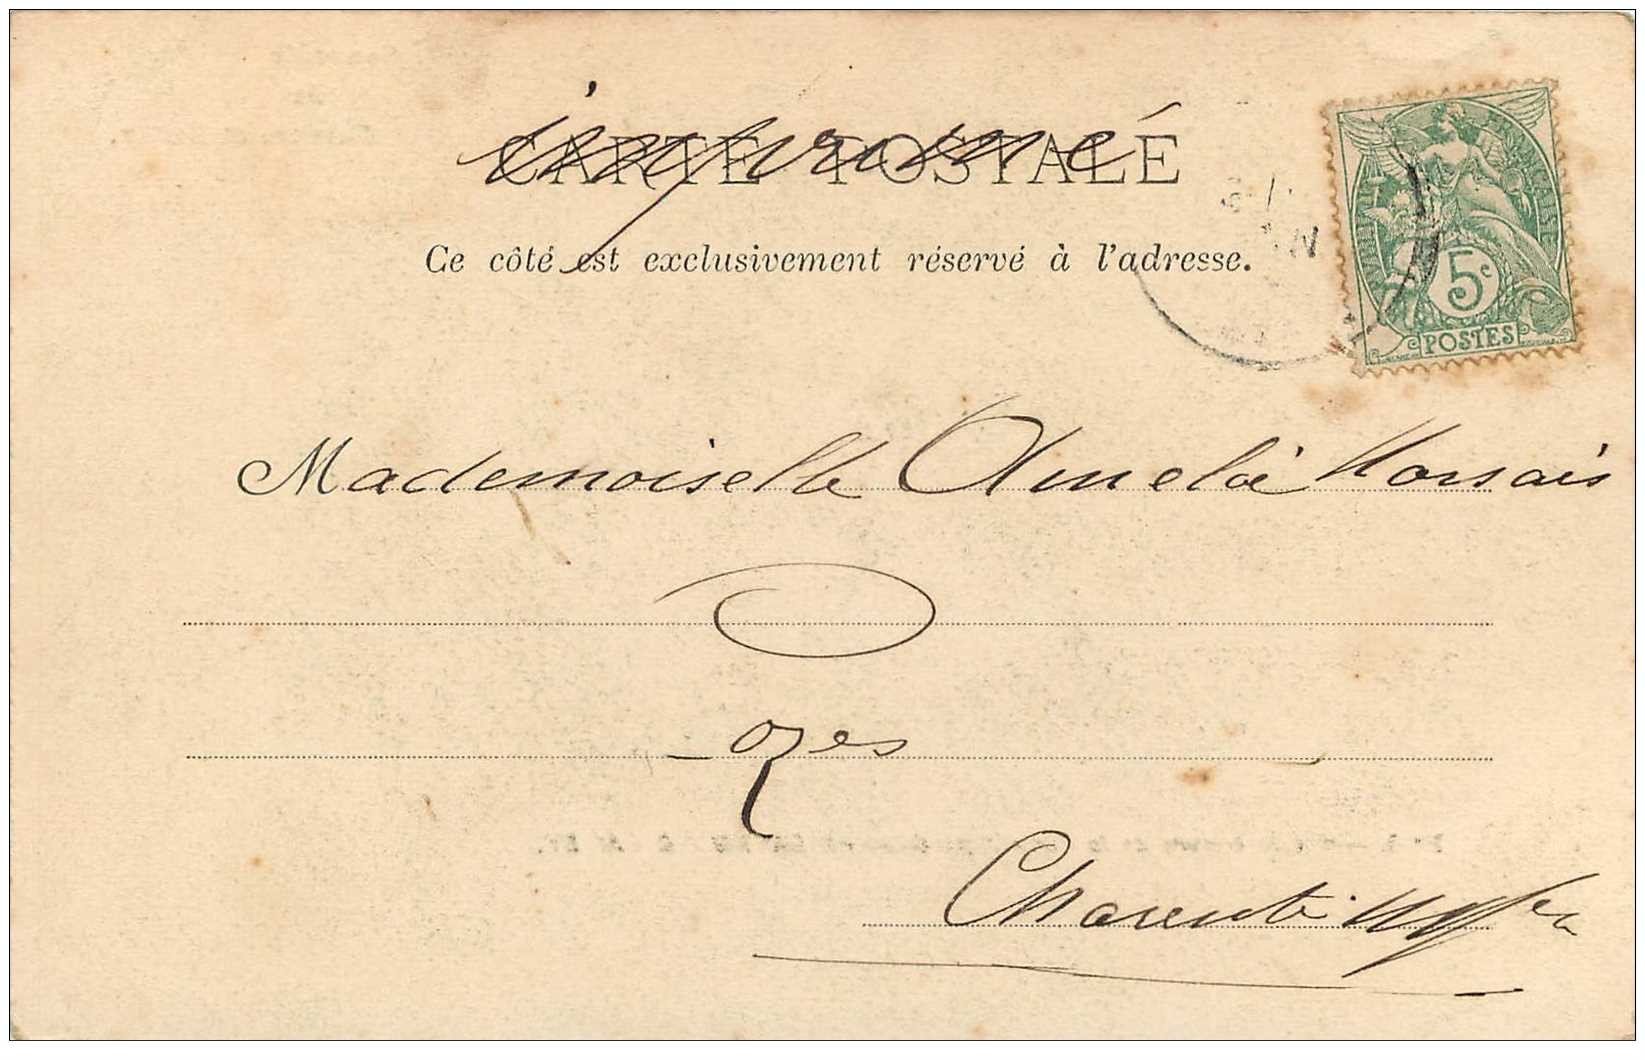 imprimé
CARTE POSTALE
Ce côté est exclusivement réservé à l'adresse.
RÉPUBLIQUE FRANÇAISE
5c
POSTES
Mademoiselle Amelie
ozes
Charente Inf